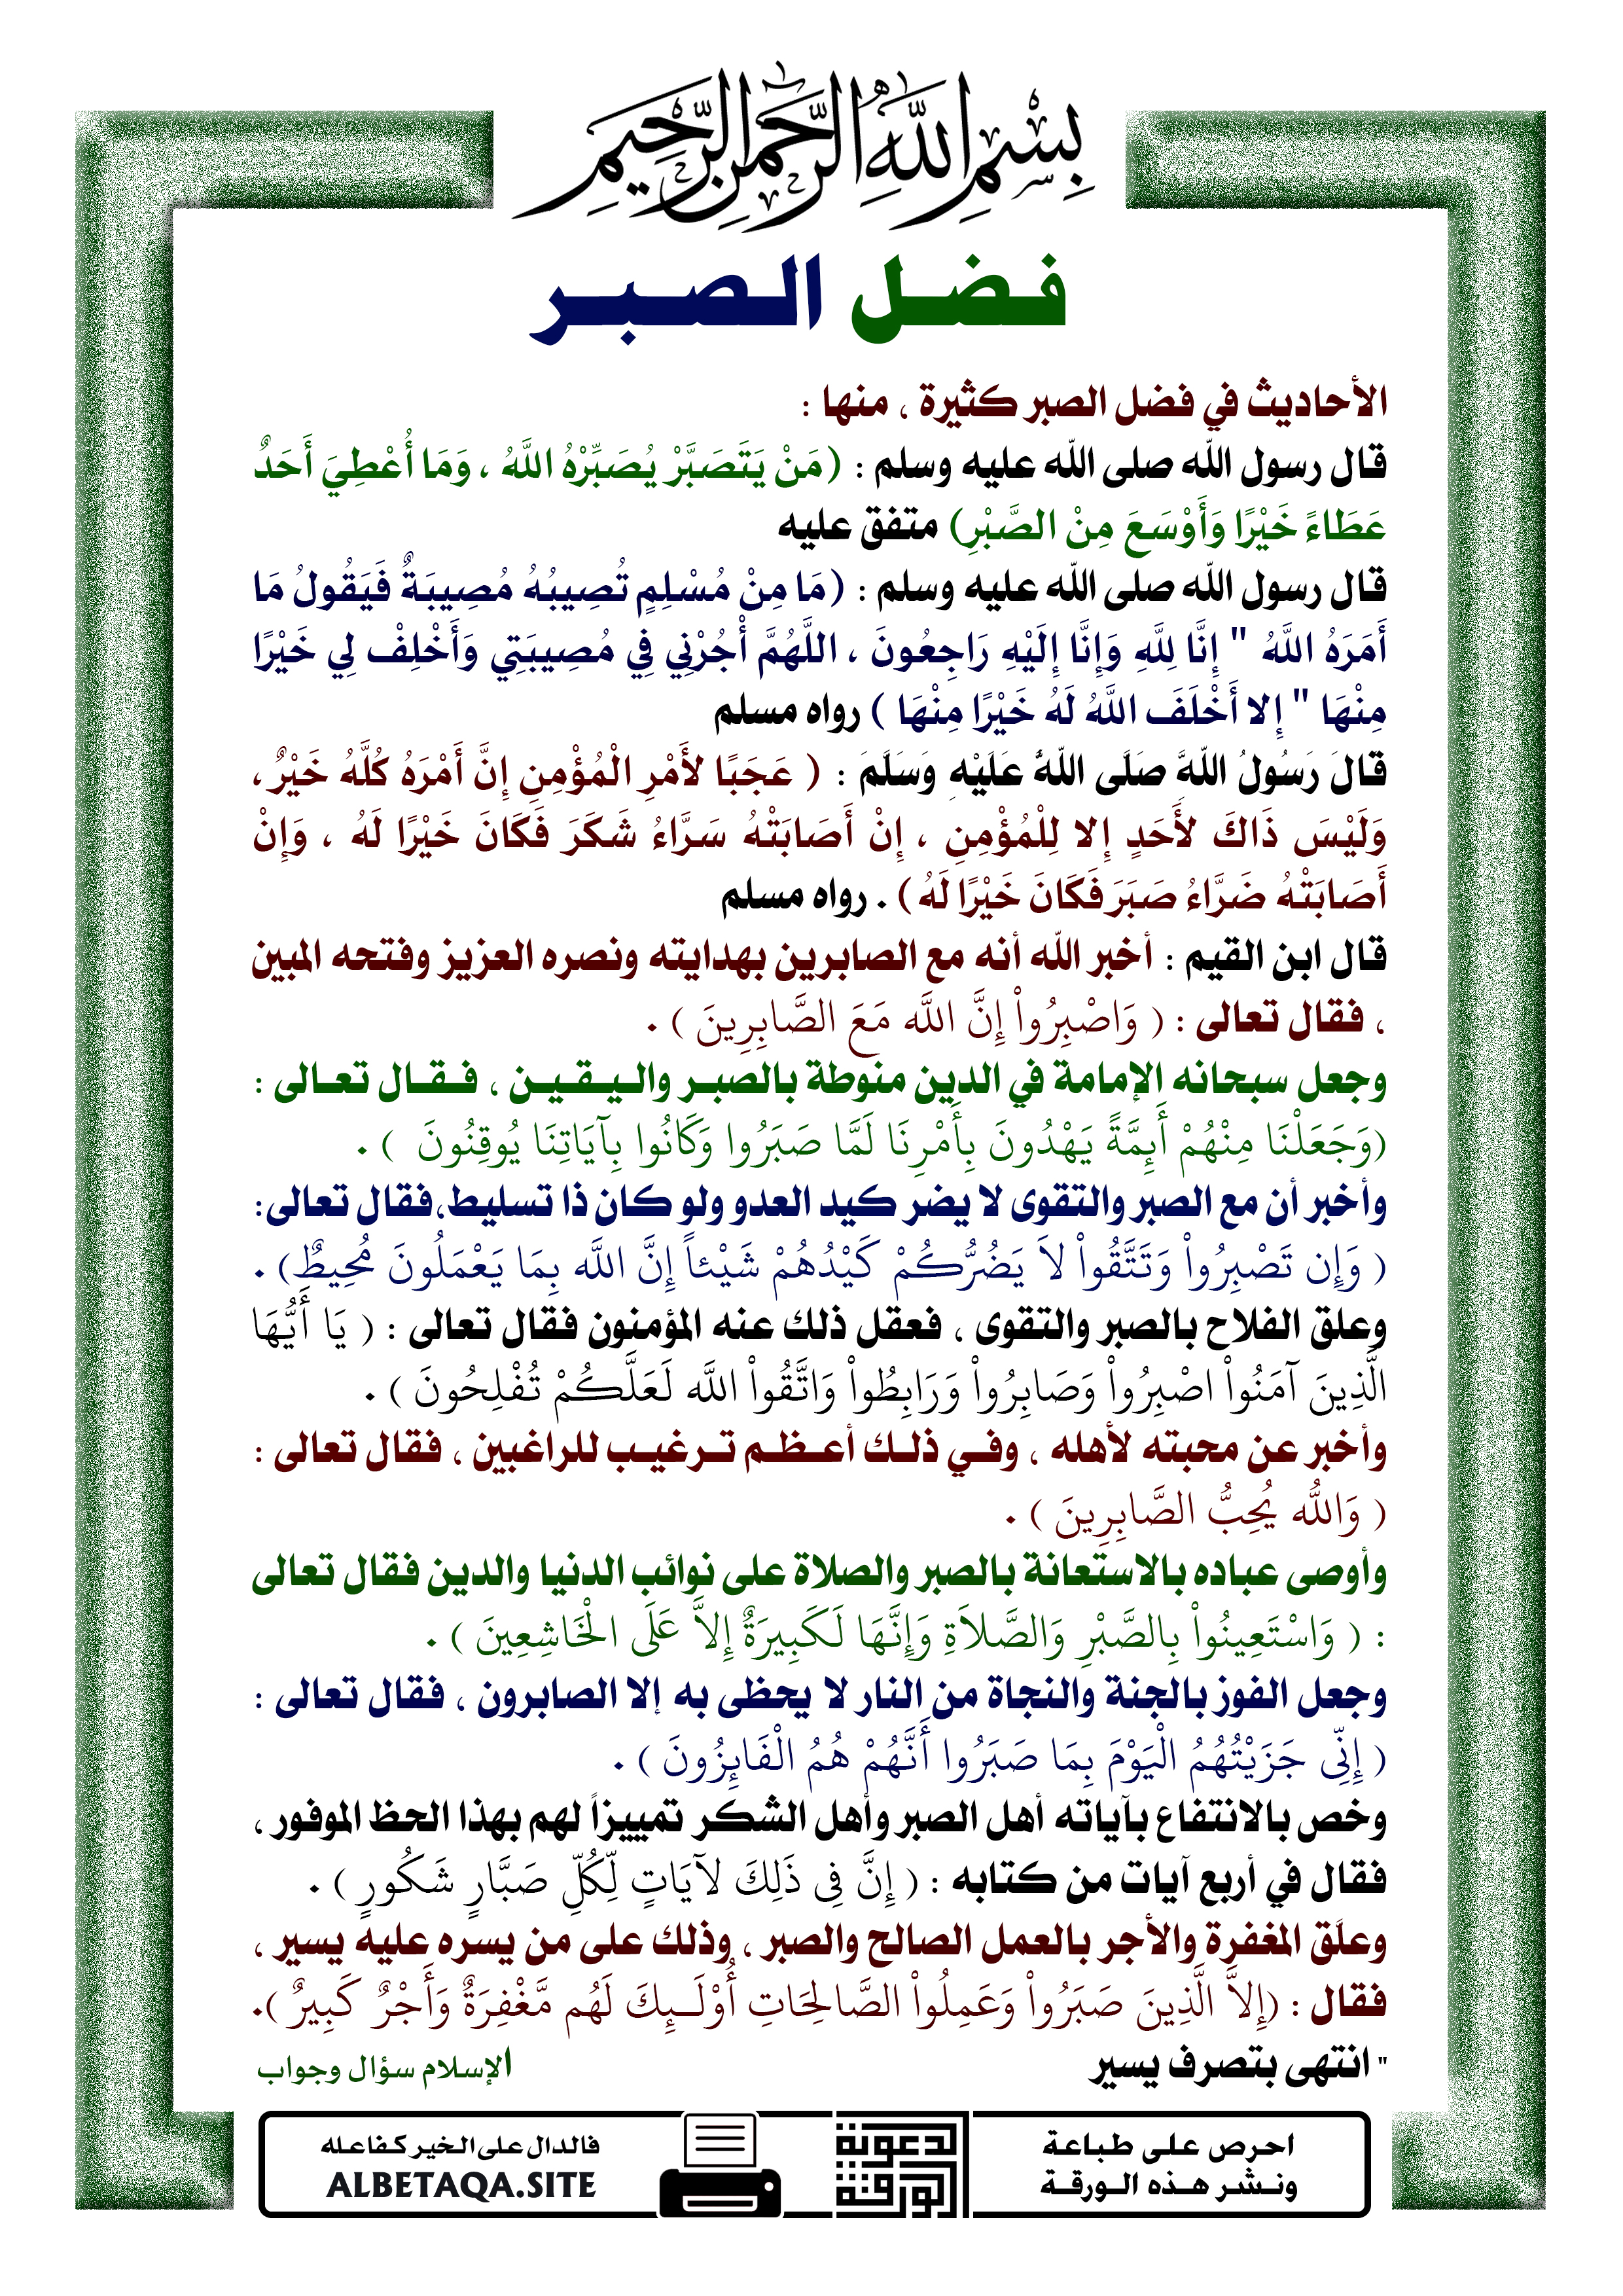 بِسْمِ اللَّهِ الرَّحْمَنِ الرَّحِيمِ
فضل الصبر
الأحاديث في فضل الصبر كثيرة ، منها :
قال رسول الله صلى الله عليه وسلم : (مَنْ يَتَصَبَّرْ يُصَبِّرْهُ اللَّهُ ، وَمَا أُعْطِيَ أَحَدٌ
عَطَاءً خَيْرًا وَأَوْسَعَ مِنْ الصَّبْرِ) متفق عليه
قال رسول الله صلى الله عليه وسلم : (مَا مِنْ مُسْلِمٍ تُصِيبُهُ مُصِيبَةٌ فَيَقُولُ مَا
أَمَرَهُ اللَّهُ " إِنَّا لِلَّهِ وَإِنَّا إِلَيْهِ رَاجِعُونَ ، اللَّهُمَّ أْجُرْنِي فِي مُصِيبَتِي وَأَخْلِفْ لِي خَيْرًا
مِنْهَا " إِلا أَخْلَفَ اللَّهُ لَهُ خَيْرًا مِنْهَا ) رواه مسلم
قَالَ رَسُولُ اللَّهِ صَلَّى اللَّهُ عَلَيْهِ وَسَلَّمَ : ( عَجَبًا لأَمْرِ الْمُؤْمِنِ إِنَّ أَمْرَهُ كُلَّهُ خَيْرٌ ،
وَلَيْسَ ذَاكَ لأَحَدٍ إِلا لِلْمُؤْمِنِ ، إِنْ أَصَابَتْهُ سَرَّاءُ شَكَرَ فَكَانَ خَيْرًا لَهُ ، وَإِنْ
أَصَابَتْهُ ضَرَّاءُ صَبَرَ فَكَانَ خَيْرًا لَهُ) . رواه مسلم
قال ابن القيم : أخبر الله أنه مع الصابرين بهدايته ونصره العزيز وفتحه المبين
، فقال تعالى : ( وَاصْبِرُواْ إِنَّ اللَّه مَعَ الصَّابِرِينَ ) .
وجعل سبحانه الإمامة في الدين منوطة بالصبر واليقين ، فقال تعالى :
(وَجَعَلْنَا مِنْهُمْ أَئِمَّةً يَهْدُونَ بِأَمْرِنَا لَمَّا صَبَرُوا وَكَانُوا بِآيَاتِنَا يُوقِنُونَ ) .
وأخبر أن مع الصبر والتقوى لا يضر كيد العدو ولو كان ذا تسليط،فقال تعالى:
( وَإِن تَصْبِرُواْ وَتَتَّقُواْ لاَ يَضُرُّكُمْ كَيْدُهُمْ شَيْئاً إِنَّ اللَّه بِمَا يَعْمَلُونَ مُحِيطٌ) .
وعلق الفلاح بالصبر والتقوى ، فعقل ذلك عنه المؤمنون فقال تعالى : ( يَا أَيُّهَا
الَّذِينَ آمَنُواْ اصْبِرُواْ وَصَابِرُواْ وَرَابِطُواْ وَاتَّقُواْ اللَّه لَعَلَّكُمْ تُفْلِحُونَ ) .
وأخبر عن محبته لأهله ، وفي ذلك أعظم ترغيب للراغبين ، فقال تعالى :
( وَاللَّه يُحِبُّ الصَّابِرِينَ ) .
وأوصى عباده بالاستعانة بالصبر والصلاة على نوائب الدنيا والدين فقال تعالى
: ( وَاسْتَعِينُواْ بِالصَّبْرِ وَالصَّلاَةِ وَإِنَّهَا لَكَبِيرَةٌ إِلاَّ عَلَى الْخَاشِعِينَ ) .
وجعل الفوز بالجنة والنجاة من النار لا يحظى به إلا الصابرون ، فقال تعالى :
( إِنِّى جَزَيْتُهُمُ الْيَوْمَ بِمَا صَبَرُوا أَنَّهُمْ هُمُ الْفَائِزُونَ ) .
وخص بالانتفاع بآياته أهل الصبر وأهل الشكر تمييزاً لهم بهذا الحظ الموفور ،
فقال في أربع آيات من كتابه : ( إِنَّ فِى ذَلِكَ لآيَاتٍ لِّكُلِّ صَبَّارٍ شَكُورٍ ) .
وعلَق المغفرة والأجر بالعمل الصالح والصبر ، وذلك على من يسره عليه يسير ،
فقال : (إِلاَّ الَّذِينَ صَبَرُواْ وَعَمِلُواْ الصَّالِحَاتِ أُوْلَـئِكَ لَهُم مَّغْفِرَةٌ وَأَجْرٌ كَبِيرٌ ).
" انتهى بتصرف يسير
الإسلام سؤال وجواب
احرص على طباعة
ونشر هذه الورقة
الدعوية
الورقة
فالدال على الخير كفاعله
ALBETAQA.SITE